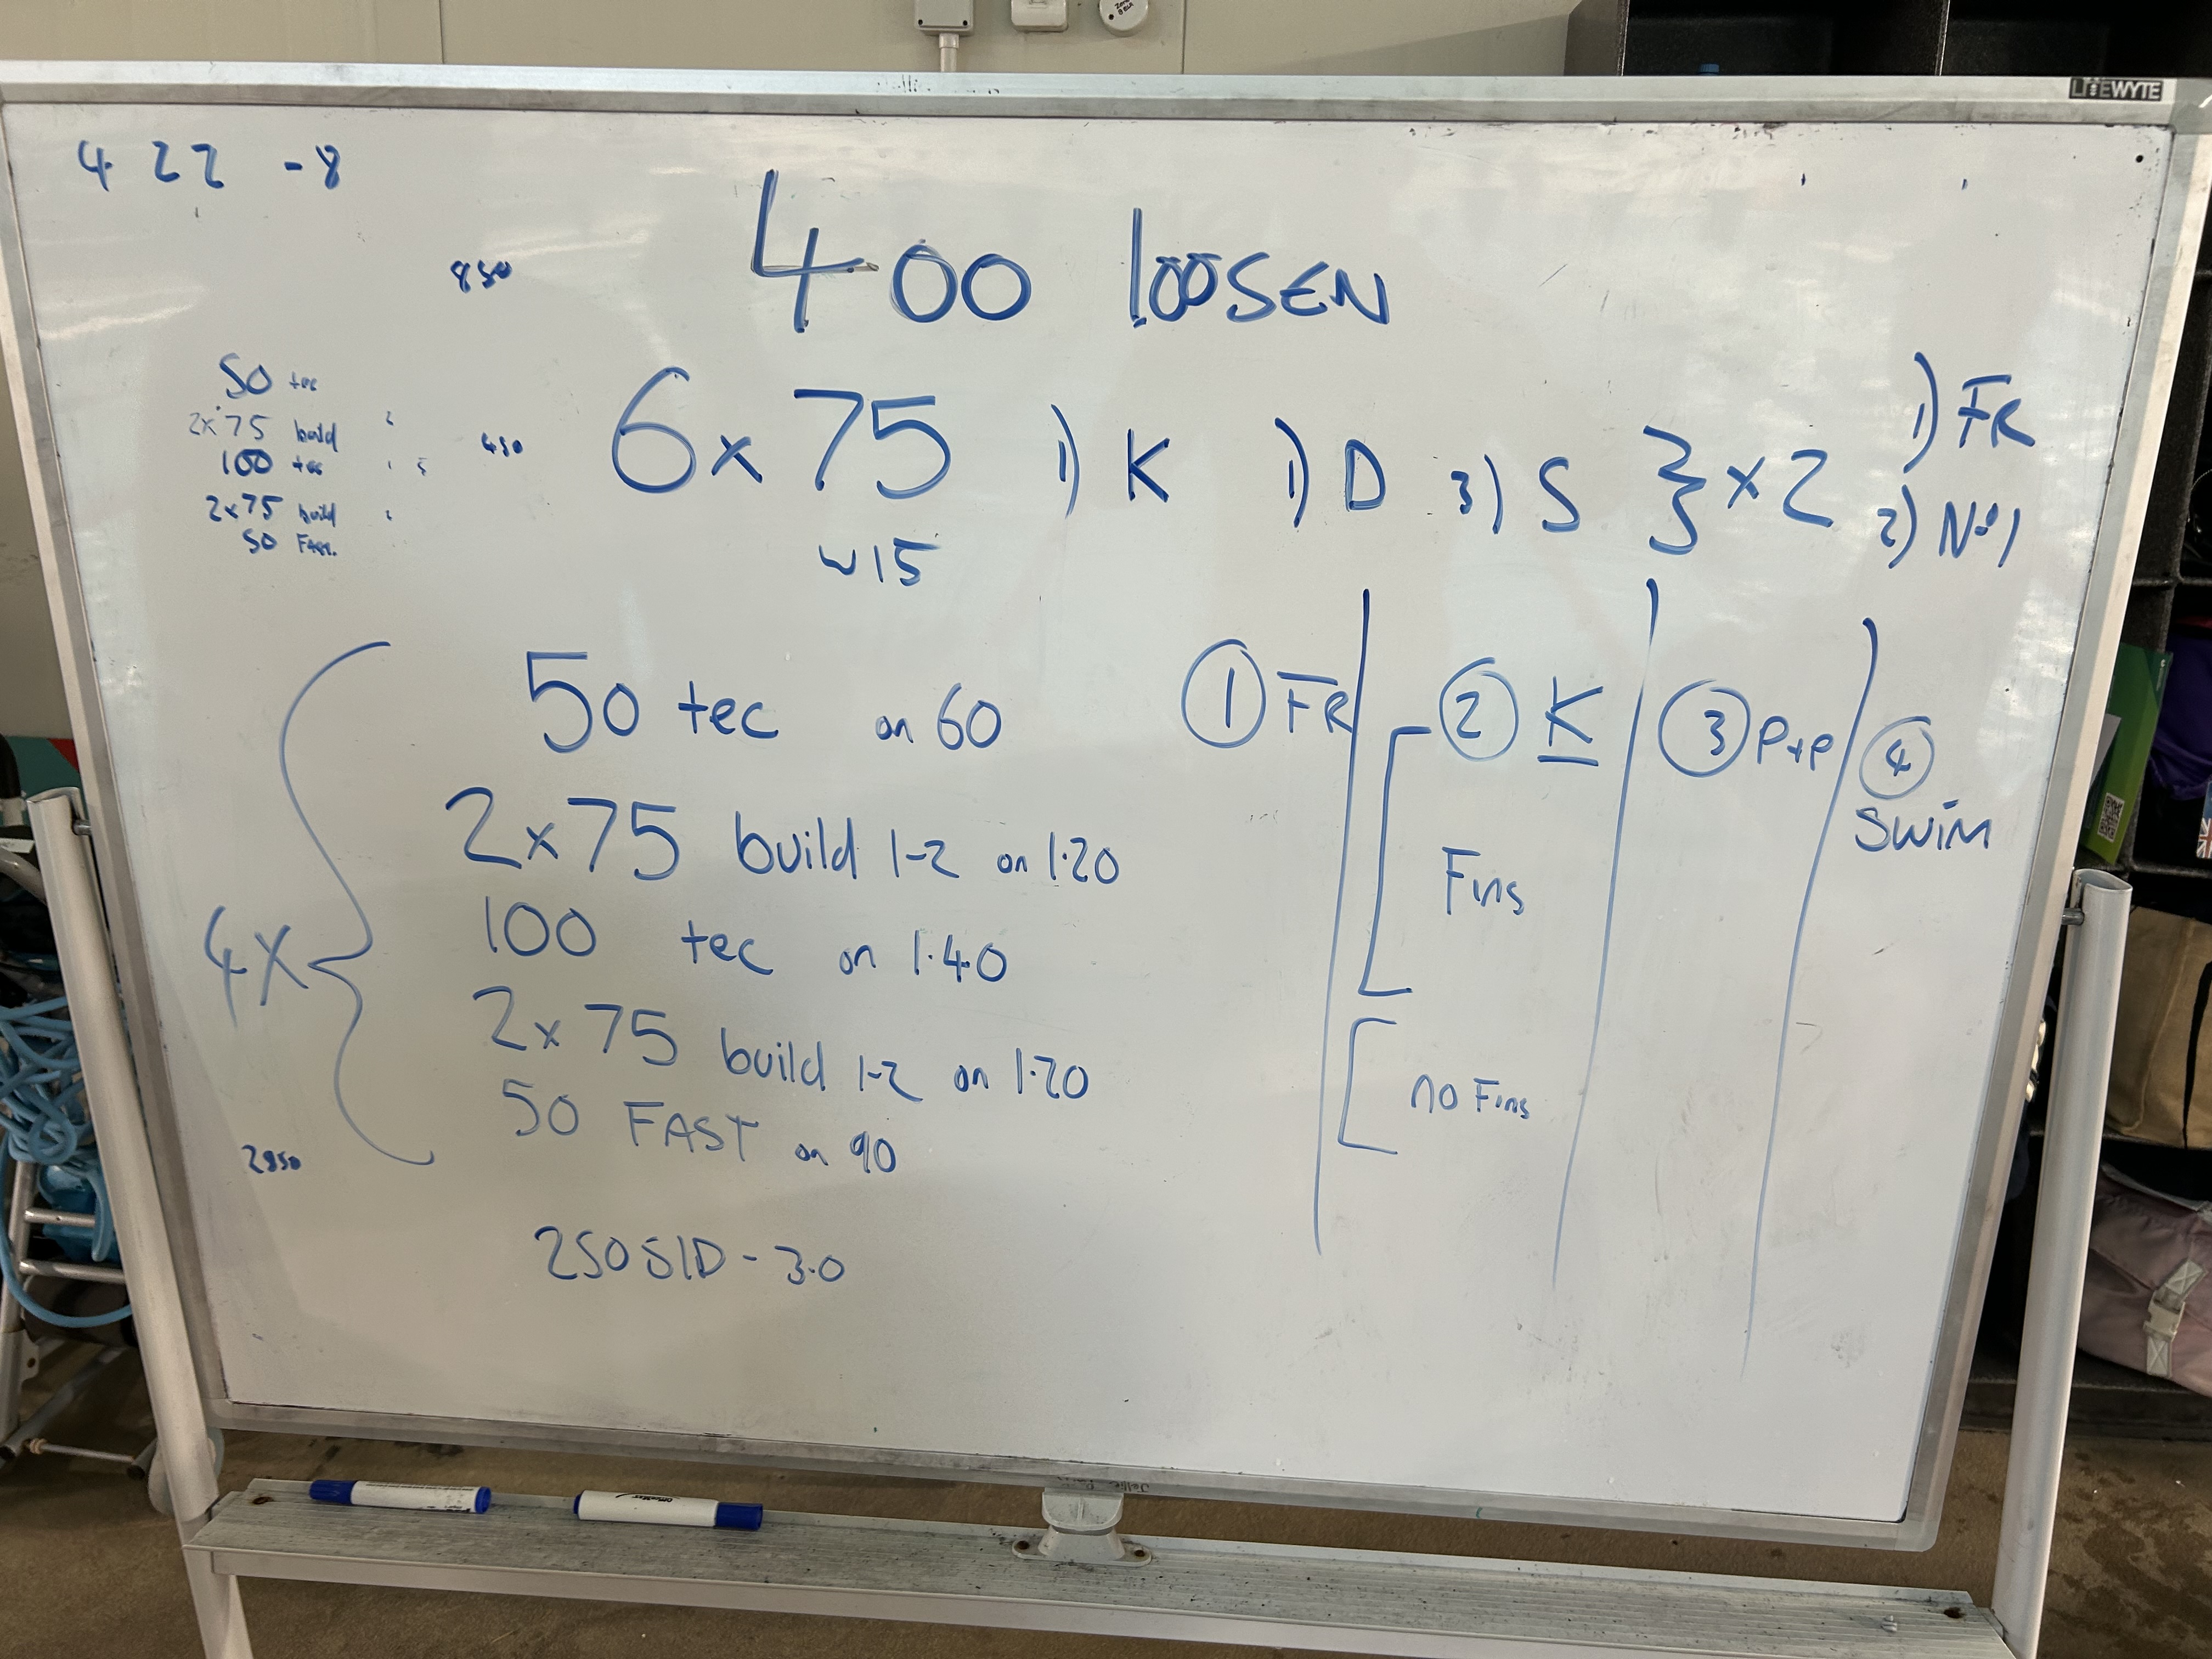 LITEWYTE
4 22 -8
850
400 loosen
50 tec
2x75 build
100 tec
2x75 build
50 Fast.
450
6x75 1) K 1) D 3) S } x2
1) FR
2) No1
~15
4x
50 tec on 60
2x75 build 1-2 on 1.20
100 tec on 1.40
2x75 build 1-2 on 1.20
50 FAST on 90
2850
1 FR
2 K
3 P+P
4 SWIM
Fins
no Fins
250 S/D - 3.0